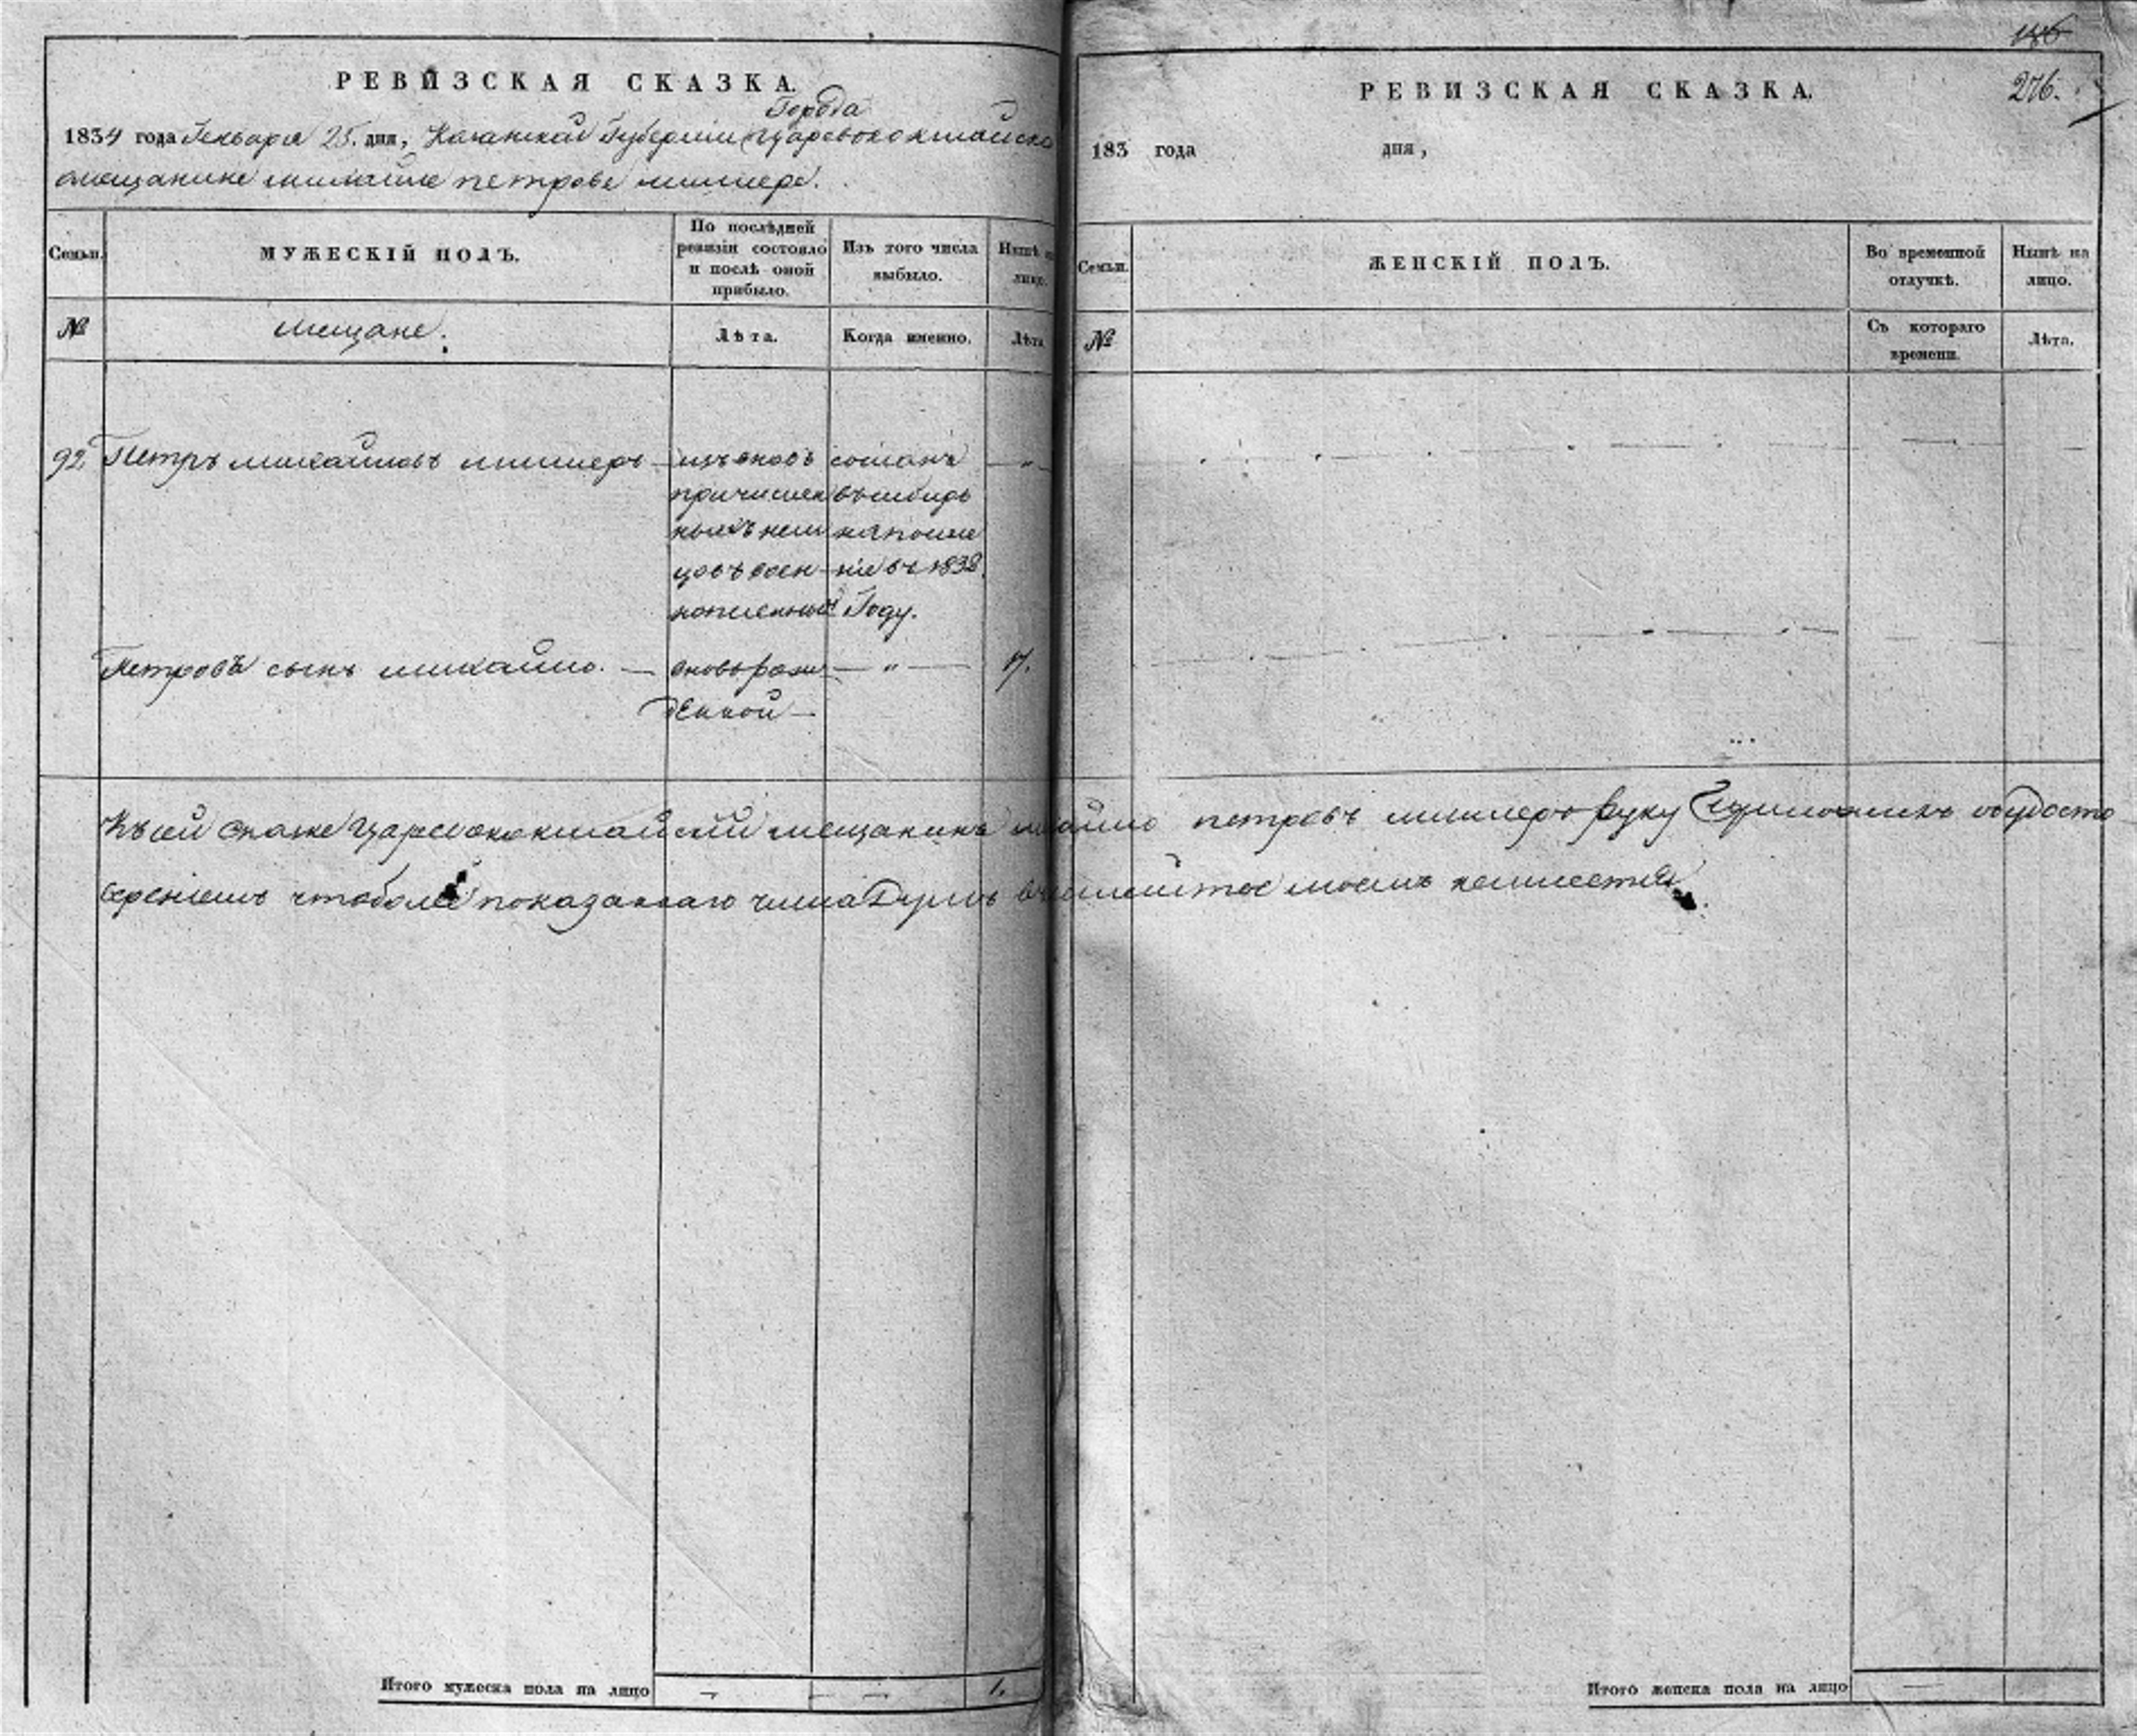 РЕВИЗСКАЯ СКАЗКА.
Города
1834 года Генваря 25. дня, Казанской Губернии Царевококшайска
о мещанине михайле петрове миллере.
Семьи.
МУЖЕСКІЙ ПОЛЪ.
По послѣдней ревизіи состояло и послѣ оной прибыло.
Изъ того числа выбыло.
Нынѣ на лицо.
№
мещане.
Лѣта.
Когда именно.
Лѣта
92. Петръ михайловъ миллеръ — изъ вновь сосланъ — „
причислен въ сибирь
ныхъ нем на поселе
цовъ воен ніе въ 1832
нопленный Году.
Петровъ сынъ михайло. — вноворож — „ — 17.
денной —
Къ сей скаске Царевококшайскій мещанинъ михайло петровъ миллеръ руку приложилъ судосто
вереніемъ что более показаннаго числа Душъ в семействе моемъ неимеется
Итого мужеска пола на лицо
1.
186
РЕВИЗСКАЯ СКАЗКА.
276.
183 года дня,
Семьи.
ЖЕНСКІЙ ПОЛЪ.
Во временной отлучкѣ.
Нынѣ на лицо.
№
Съ котораго времени.
Лѣта.
Итого женска пола на лицо